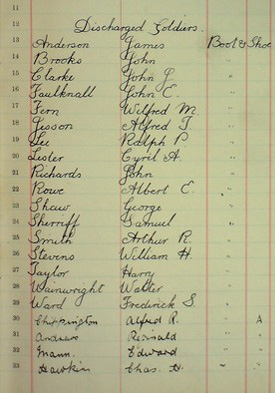 11
12 Discharged Soldiers.
13 Anderson James Boot & Shoe
14 Brooks John "
15 Clarke John J. "
16 Faulknall John C. "
17 Fern Wilfred M. "
18 Gisson Alfred T. "
19 Lee Ralph P. "
20 Lester Cyril A. "
21 Richards John "
22 Rowe Albert C. "
23 Shaw George "
24 Sherriff Samuel "
25 Smith Arthur R. "
26 Stevens William H. "
27 Taylor Harry "
28 Wainwright Walter "
29 Ward Fredrick S. "
30 Chippington Alfred R. " A
31 Andrews Reginald " "
32 Mann. Edward " "
33 Hawkin Chas. H. " "